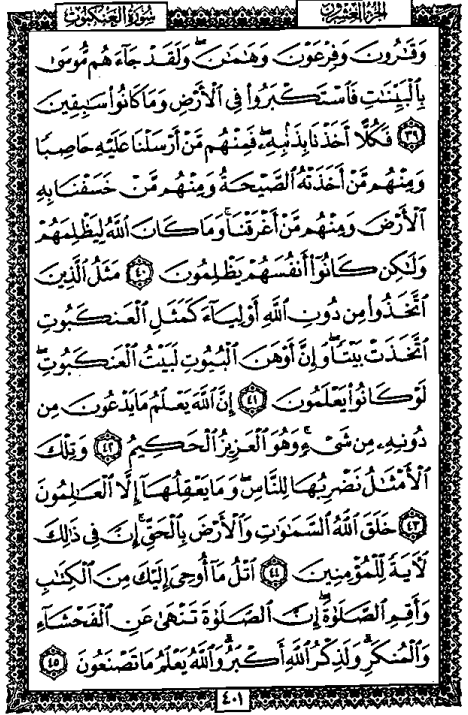 الجزء العشرون سورة العنكبوت
وَقَٰرُونَ وَفِرْعَوْنَ وَهَٰمَٰنَ ۖ وَلَقَدْ جَآءَهُم مُّوسَىٰ
بِٱلْبَيِّنَٰتِ فَٱسْتَكْبَرُوا۟ فِى ٱلْأَرْضِ وَمَا كَانُوا۟ سَٰبِقِينَ
﴿٣٩﴾ فَكُلًّا أَخَذْنَا بِذَنۢبِهِۦ ۖ فَمِنْهُم مَّنْ أَرْسَلْنَا عَلَيْهِ حَاصِبًا
وَمِنْهُم مَّنْ أَخَذَتْهُ ٱلصَّيْحَةُ وَمِنْهُم مَّنْ خَسَفْنَا بِهِ
ٱلْأَرْضَ وَمِنْهُم مَّنْ أَغْرَقْنَا ۚ وَمَا كَانَ ٱللَّهُ لِيَظْلِمَهُمْ
وَلَٰكِن كَانُوٓا۟ أَنفُسَهُمْ يَظْلِمُونَ ﴿٤٠﴾ مَثَلُ ٱلَّذِينَ
ٱتَّخَذُوا۟ مِن دُونِ ٱللَّهِ أَوْلِيَآءَ كَمَثَلِ ٱلْعَنكَبُوتِ
ٱتَّخَذَتْ بَيْتًا ۖ وَإِنَّ أَوْهَنَ ٱلْبُيُوتِ لَبَيْتُ ٱلْعَنكَبُوتِ ۖ
لَوْ كَانُوا۟ يَعْلَمُونَ ﴿٤١﴾ إِنَّ ٱللَّهَ يَعْلَمُ مَا يَدْعُونَ مِن
دُونِهِۦ مِن شَىْءٍ ۚ وَهُوَ ٱلْعَزِيزُ ٱلْحَكِيمُ ﴿٤٢﴾ وَتِلْكَ
ٱلْأَمْثَٰلُ نَضْرِبُهَا لِلنَّاسِ ۖ وَمَا يَعْقِلُهَآ إِلَّا ٱلْعَٰلِمُونَ
﴿٤٣﴾ خَلَقَ ٱللَّهُ ٱلسَّمَٰوَٰتِ وَٱلْأَرْضَ بِٱلْحَقِّ ۚ إِنَّ فِى ذَٰلِكَ
لَءَايَةً لِّلْمُؤْمِنِينَ ﴿٤٤﴾ ٱتْلُ مَآ أُوحِىَ إِلَيْكَ مِنَ ٱلْكِتَٰبِ
وَأَقِمِ ٱلصَّلَوٰةَ ۖ إِنَّ ٱلصَّلَوٰةَ تَنْهَىٰ عَنِ ٱلْفَحْشَآءِ
وَٱلْمُنكَرِ ۗ وَلَذِكْرُ ٱللَّهِ أَكْبَرُ ۗ وَٱللَّهُ يَعْلَمُ مَا تَصْنَعُونَ ﴿٤٥﴾
٤٠١